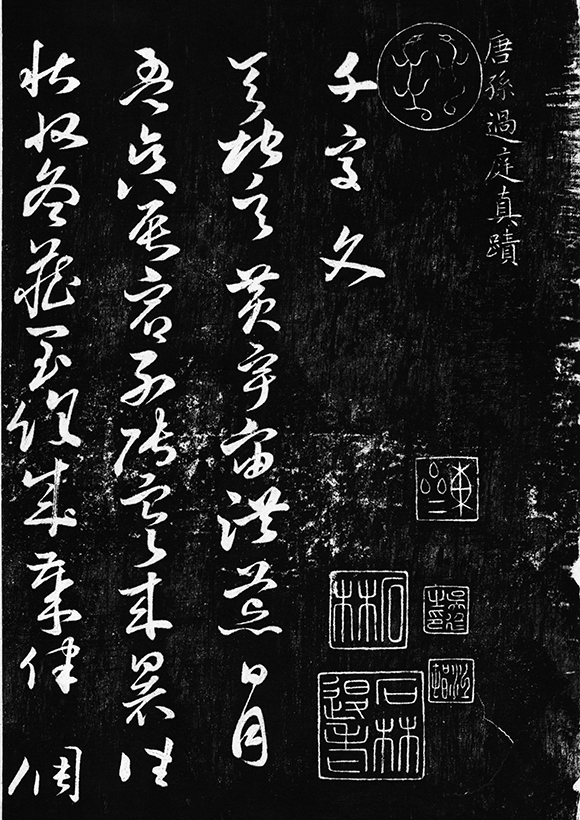 唐孫過庭真蹟
千字文
天地玄黃宇宙洪荒日月
盈昃辰宿列張寒來暑往
秋收冬藏閏餘成歲律調
石林
石林